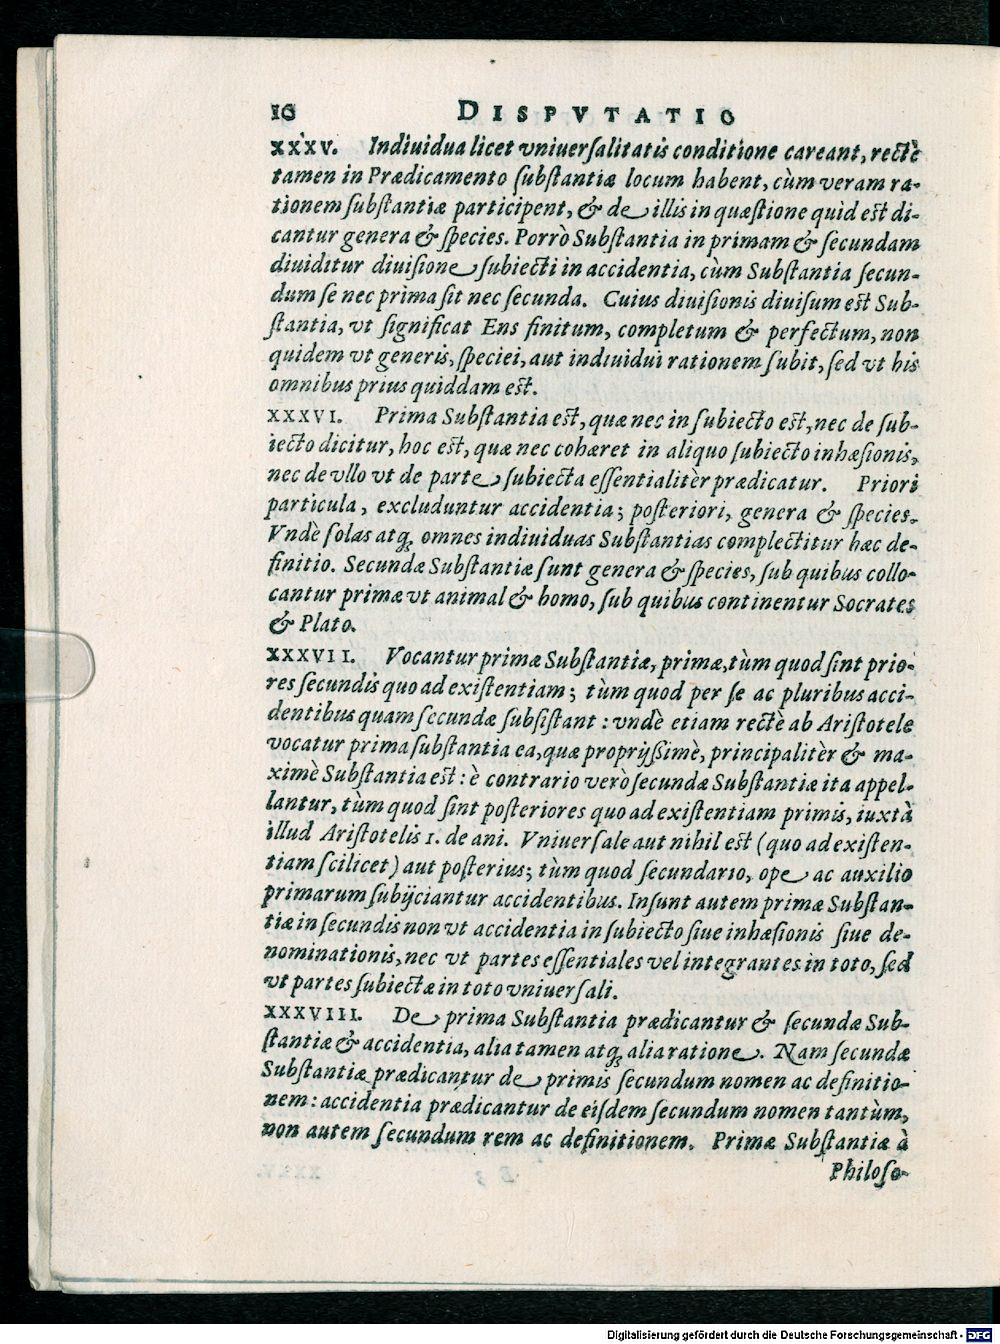 10 DISPVTATIO
XXXV. Indiuidua licet vniuerſalitatis conditione careant, rectè
tamen in Prædicamento ſubſtantiæ locum habent, cùm veram ra-
tionem ſubſtantiæ participent, & de illis in quæſtione quid eſt di-
cantur genera & ſpecies. Porrò Subſtantia in primam & ſecundam
diuiditur diuiſione ſubiecti in accidentia, cùm Subſtantia ſecun-
dum ſe nec prima ſit nec ſecunda. Cuius diuiſionis diuiſum eſt Sub-
ſtantia, vt ſignificat Ens finitum, completum & perfectum, non
quidem vt generis, ſpeciei, aut indiuidui rationem ſubit, ſed vt his
omnibus prius quiddam eſt.
XXXVI. Prima Subſtantia eſt, quæ nec in ſubiecto eſt, nec de ſub-
iecto dicitur, hoc eſt, quæ nec cohæret in aliquo ſubiecto inhæſionis,
nec de vllo vt de parte ſubiecta eſſentialitèr prædicatur. Priori
particula, excluduntur accidentia; poſteriori, genera & ſpecies.
Vndè ſolas atq; omnes indiuiduas Subſtantias complectitur hæc de-
finitio. Secundæ Subſtantiæ ſunt genera & ſpecies, ſub quibus collo-
cantur primæ vt animal & homo, ſub quibus continentur Socrates
& Plato.
XXXVII. Vocantur primæ Subſtantiæ, primæ, tùm quod ſint prio-
res ſecundis quo ad exiſtentiam; tùm quod per ſe ac pluribus acci-
dentibus quam ſecundæ ſubſiſtant: vndè etiam rectè ab Ariſtotele
vocatur prima ſubſtantia ea, quæ proprijßimè, principalitèr & ma-
ximè Subſtantia eſt: è contrario verò ſecundæ Subſtantiæ ita appel-
lantur, tùm quod ſint poſteriores quo ad exiſtentiam primis, iuxtà
illud Ariſtotelis 1. de ani. Vniuerſale aut nihil eſt (quo ad exiſten-
tiam ſcilicet) aut poſterius; tùm quod ſecundario, ope ac auxilio
primarum ſubijciantur accidentibus. Inſunt autem primæ Subſtan-
tiæ in ſecundis non vt accidentia in ſubiecto ſiue inhæſionis ſiue de-
nominationis, nec vt partes eſſentiales vel integrantes in toto, ſed
vt partes ſubiectæ in toto vniuerſali.
XXXVIII. De prima Subſtantia prædicantur & ſecundæ Sub-
ſtantiæ & accidentia, alia tamen atq; alia ratione. Nam ſecundæ
Subſtantiæ prædicantur de primis ſecundum nomen ac definitio-
nem: accidentia prædicantur de eiſdem ſecundum nomen tantùm,
non autem ſecundum rem ac definitionem. Primæ Subſtantiæ à
Philoſo-
Digitalisierung gefördert durch die Deutsche Forschungsgemeinschaft - DFG